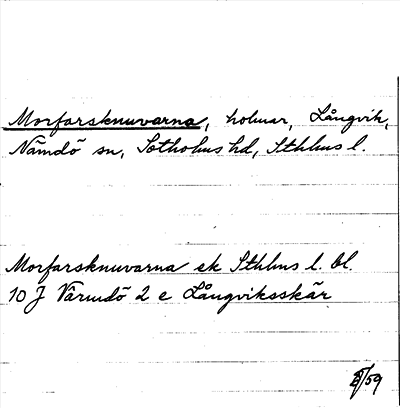 Morfarsknuvarna, holmar, Långvik,
Nämdö sn, Sotholms hd, Sthlms l.
Morfarsknuvarna ek Sthlms l. bl.
10 J Värmdö 2 e Långviksskär
/59